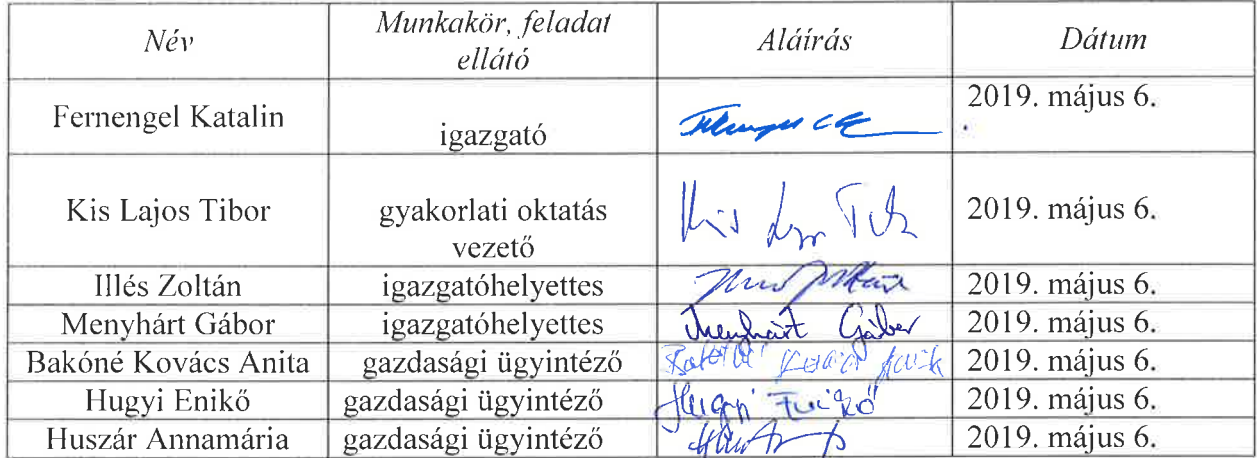 Név Munkakör, feladat Aláírás Dátum
ellátó
Fernengel Katalin igazgató 2019. május 6.
Kis Lajos Tibor gyakorlati oktatás Kis Lajos Tibor 2019. május 6.
vezető
Illés Zoltán igazgatóhelyettes Illés Zoltán 2019. május 6.
Menyhárt Gábor igazgatóhelyettes Menyhárt Gábor 2019. május 6.
Bakóné Kovács Anita gazdasági ügyintéző Bakóné Kovács Anita 2019. május 6.
Hugyi Enikő gazdasági ügyintéző Hugyi Enikő 2019. május 6.
Huszár Annamária gazdasági ügyintéző 2019. május 6.